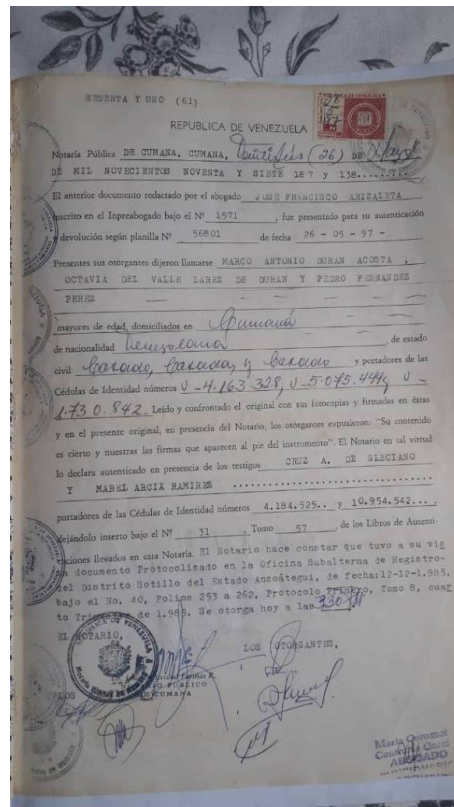 SESENTA Y UNO (61)
REPUBLICA DE VENEZUELA
Notaría Pública DE CUMANA. CUMANA, Veintiséis (26) DE Mayo
DE MIL NOVECIENTOS NOVENTA Y SIETE 187 y 138.......
El anterior documento redactado por el abogado JOSE FRANCISCO ARIZALETA
inscrito en el Inpreabogado bajo el Nº 1571 , fue presentado para su autenticación
y devolución según planilla Nº 56801 de fecha 26 - 05 - 97 -
Presentes sus otorgantes dijeron llamarse MARCO ANTONIO DURAN ACOSTA ,
OCTAVIA DEL VALLE LAREZ DE DURAN Y PEDRO FERNANDEZ
PEREZ
mayores de edad, domiciliados en Cumaná
de nacionalidad Venezolana , de estado
civil Casado, Casada, y Casado y portadores de las
Cédulas de Identidad números V-4.163.328, V-5.075.444 y V-
1.730.842. Leído y confrontado el original con sus fotocopias y firmadas en éstas
y en el presente original, en presencia del Notario, los otorgantes expusieron: "Su contenido
es cierto y nuestras las firmas que aparecen al pie del instrumento". El Notario en tal virtud
lo declara autenticado en presencia de los testigos CRUZ A. DE GLECIANO
Y MABEL ARCIA RAMIREZ
portadores de las Cédulas de Identidad números 4.184.525.. y 10.954.542...,
dejándolo inserto bajo el Nº 31 , Tomo 57 , de los Libros de Autenti-
caciones llevados en esta Notaría. El Notario hace constar que tuvo a su vis
ta documento Protocolizado en la Oficina Subalterna de Registro-
del Distrito Sotillo del Estado Anzoátegui, de fecha:12-12-1.985,
bajo el No. 40, Folios 253 a 262, Protocolo Primero, Tomo 8, cuar
to Trimestre de 1.985. Se otorga hoy a las 3:30 PM
EL NOTARIO,
LOS OTORGANTES,
NOTARIO PUBLICO
DE CUMANA
LOS
María Coromot
ABOGADO